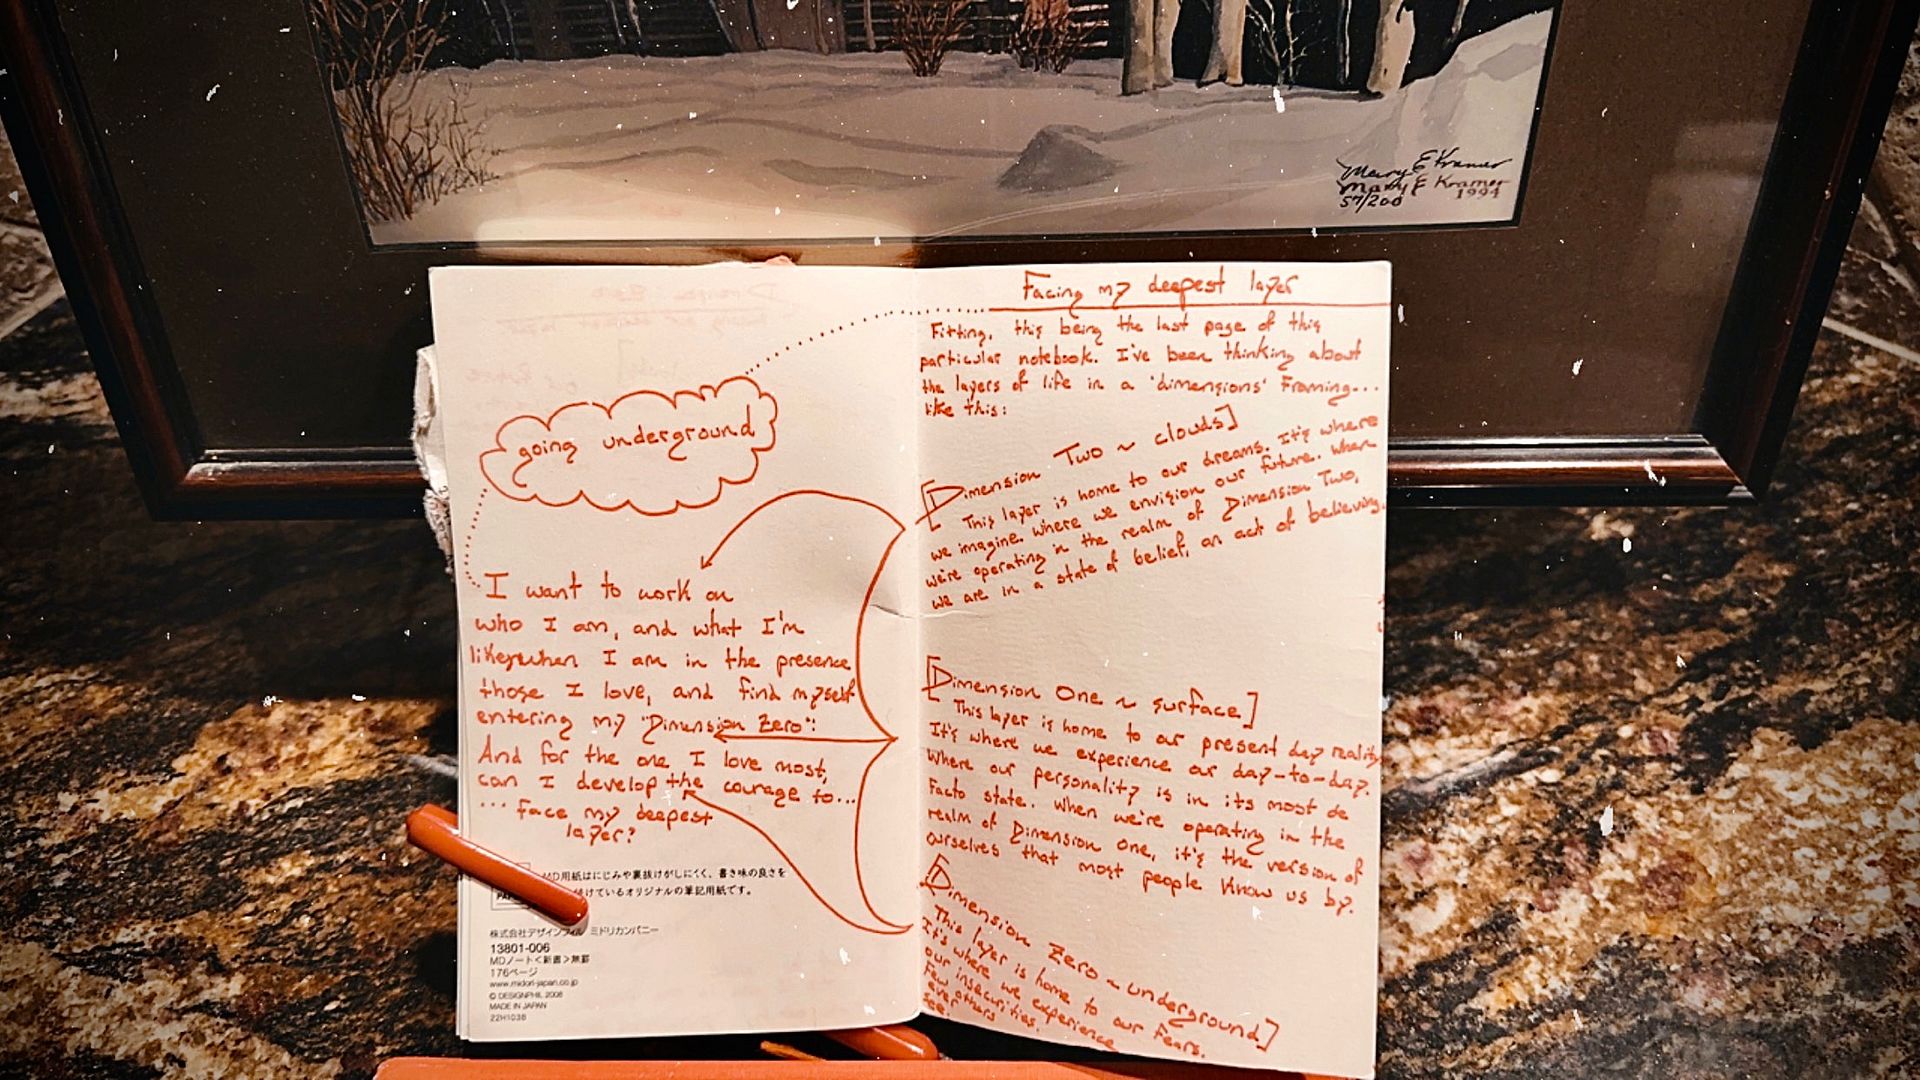 Mary E Kramer
Mary E Kramer
57/200 1994
going underground
I want to work on
who I am, and what I'm
like, when I am in the presence
those I love, and find myself
entering my "Dimension Zero".
And for the one I love most,
can I develop the courage to...
... face my deepest
layer?
MD用紙はにじみや裏抜けがしにくく、書き味の良さを
付けているオリジナルの筆記用紙です。
株式会社デザインフィル ミドリカンパニー
13801-006
MDノート<新書>無罫
176ページ
www.midori-japan.co.jp
© DESIGNPHIL 2008
MADE IN JAPAN
22H1038
Facing my deepest layer
Fitting, this being the last page of this
particular notebook. I've been thinking about
the layers of life in a 'dimensions' framing...
like this:
[Dimension Two ~ clouds]
This layer is home to our dreams. It's where
we imagine. Where we envision our future. When
we're operating in the realm of Dimension Two,
we are in a state of belief, an act of believing.
[Dimension One ~ surface]
This layer is home to our present day reality
It's where we experience our day-to-day.
Where our personality is in its most de
facto state. When we're operating in the
realm of Dimension One, it's the version of
ourselves that most people know us by.
[Dimension Zero ~ underground]
This layer is home to our fears.
It's where we experience
our insecurities.
Few others
ever
see.